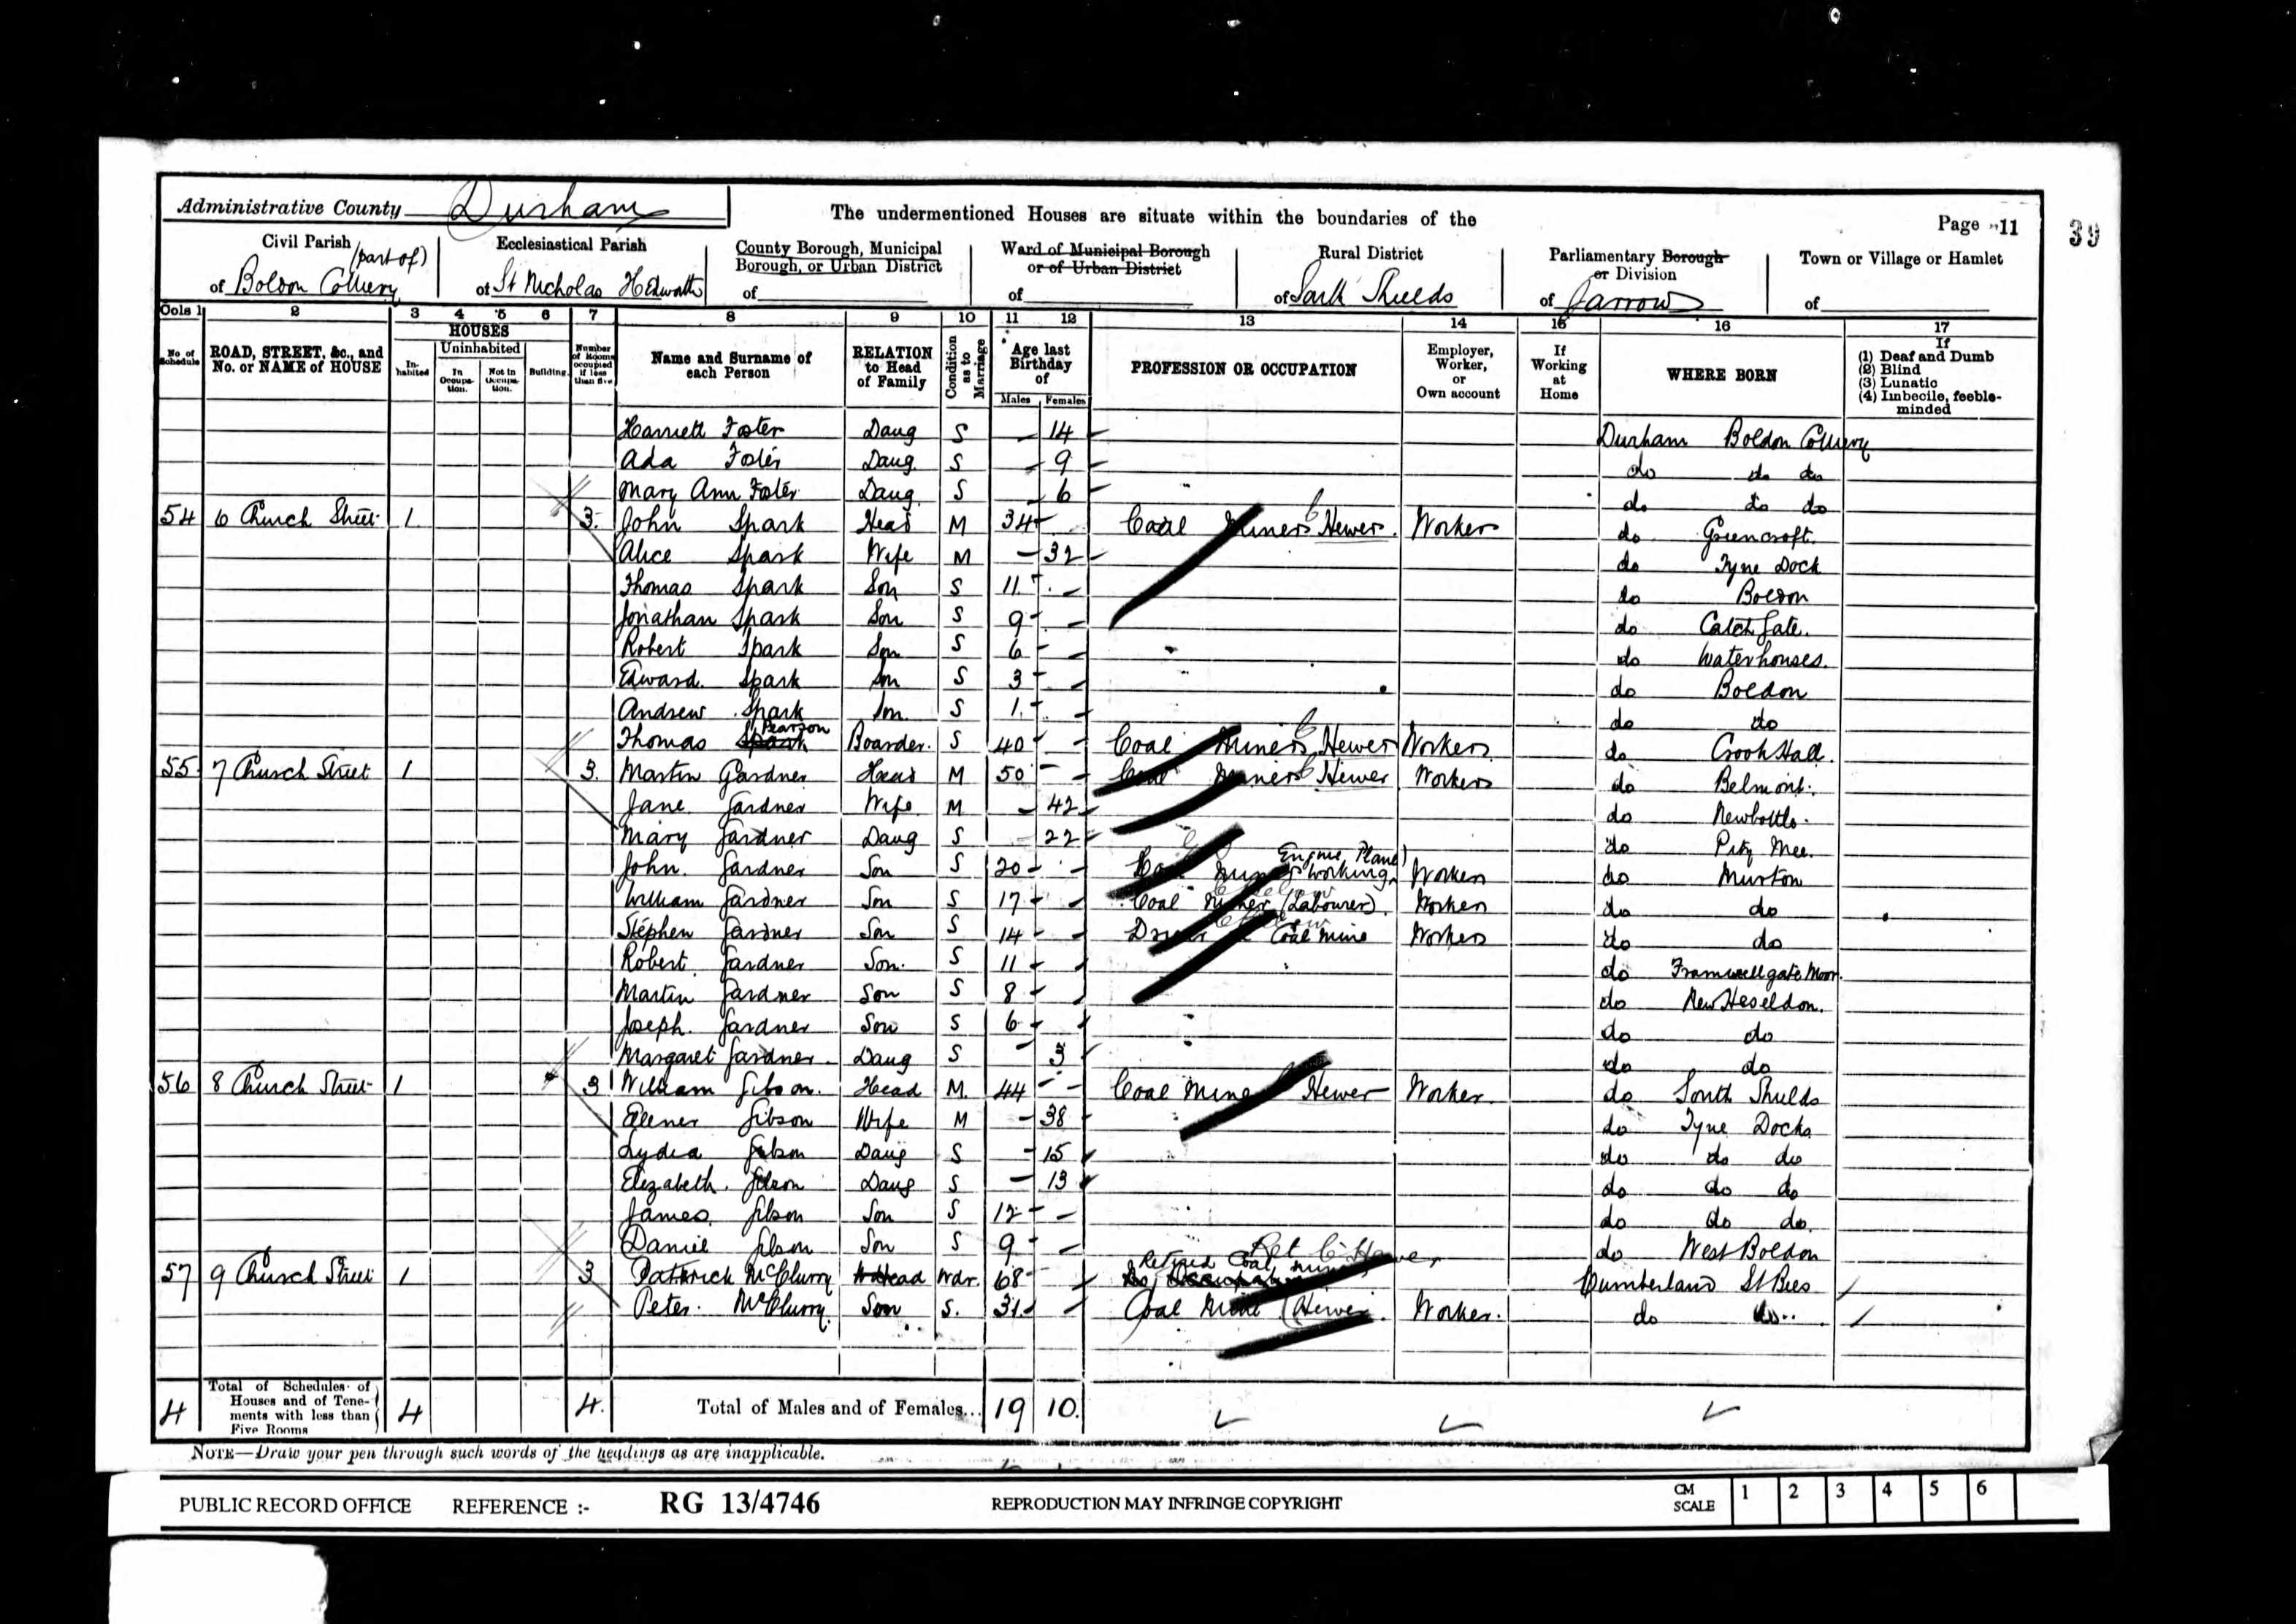 Administrative County Durham
The undermentioned Houses are situate within the boundaries of the
Page 11
39
Civil Parish (part of) of Boldon Colliery
Ecclesiastical Parish of St Nicholas Hedworth
County Borough, Municipal Borough, or Urban District of
Ward of Municipal Borough or of Urban District of
Rural District of South Shields
Parliamentary Borough or Division of Jarrow
Town or Village or Hamlet of
Cols 1 2 3 4 5 6 7 8 9 10 11 12 13 14 15 16 17
No of Schedule
ROAD, STREET, &c., and No. or NAME of HOUSE
HOUSES
Inhabited
Uninhabited
In Occupation.
Not in Occupation.
Building.
Number of Rooms occupied if less than five
Name and Surname of each Person
RELATION to Head of Family
Condition as to Marriage
Age last Birthday of
Males Females
PROFESSION OR OCCUPATION
Employer, Worker, or Own account
If Working at Home
WHERE BORN
If (1) Deaf and Dumb (2) Blind (3) Lunatic (4) Imbecile, feeble-minded
Harriett Foster Daug S 14 Durham Boldon Colliery
Ada Foster Daug S 9 do do do
Mary Ann Foster Daug S 6 do do do
54 6 Church Street 1 3 John Spark Head M 34 Coal Miner Hewer Worker do Greencroft
Alice Spark Wife M 32 do Tyne Dock
Thomas Spark Son S 11 do Boldon
Jonathan Spark Son S 9 do Catch Gate
Robert Spark Son S 6 do Waterhouses
Edward Spark Son S 3 do Boldon
Andrew Spark Son S 1 do do
Thomas Pearson Boarder S 40 Coal Miner Hewer Worker do Crook Hall
55 7 Church Street 1 3 Martin Gardner Head M 50 Coal Miner Hewer Worker do Belmont
Jane Gardner Wife M 42 do Newbottle
Mary Gardner Daug S 22 do Pity Mee
John Gardner Son S 20 Coal Miner Working Engine Plane Worker do Murton
William Gardner Son S 17 Coal Miner (Labourer) Worker do do
Stephen Gardner Son S 14 Driver Coal Mine Worker do do
Robert Gardner Son S 11 do Framwellgate Moor
Martin Gardner Son S 8 do New Heseldon
Joseph Gardner Son S 6 do do
Margaret Gardner Daug S 3 do do
56 8 Church Street 1 3 William Gibson Head M 44 Coal Mine Hewer Worker do South Shields
Elener Gibson Wife M 38 do Tyne Docks
Lydia Gibson Daug S 15 do do do
Elizabeth Gibson Daug S 13 do do do
James Gibson Son S 12 do do do
Daniel Gibson Son S 9 do West Boldon
57 9 Church Street 1 3 Patrick McClurry Head Wdr. 68 Retired Coal Miner Ret C Hewer Cumberland St Bees
Peter McClurry Son S. 31 Coal Mine (Hewer Worker do do
4 Total of Schedules of Houses and of Tenements with less than Five Rooms 4 4. Total of Males and of Females... 19 10
NOTE—Draw your pen through such words of the headings as are inapplicable.
PUBLIC RECORD OFFICE REFERENCE :- RG 13/4746 REPRODUCTION MAY INFRINGE COPYRIGHT CM SCALE 1 2 3 4 5 6